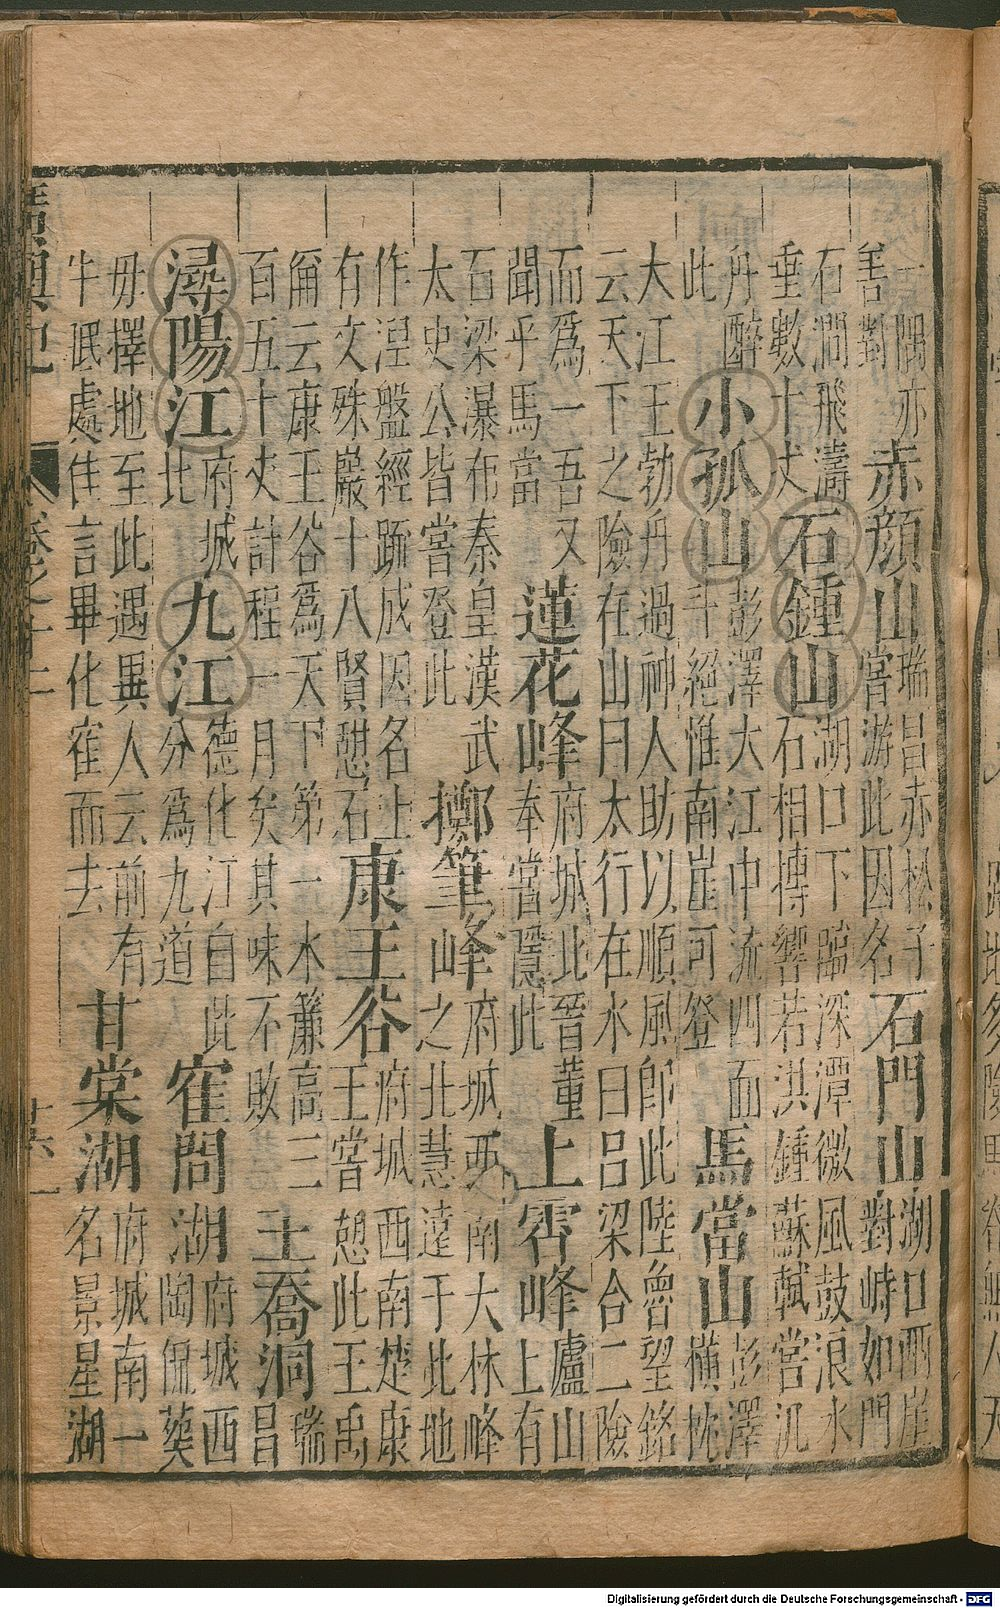 一隅亦善對赤顏山瑞昌赤松子嘗游此因名石門山湖口兩崖對峙如門
石澗飛濤垂數十丈石鍾山湖口下臨深潭微風鼓浪水石相搏響若洪鍾蘇軾嘗泛
舟醉此小孤山彭澤大江中流四面斗絕惟南崖可登馬當山彭澤橫枕
大江王勃舟過神人助以順風即此陸魯望銘云天下之險在山曰太行在水曰呂梁合二險
而為一吾又聞乎馬當蓮花峰府城北晉董奉嘗隱此上霄峰廬山上有
石梁瀑布秦皇漢武太史公皆嘗登此擲筆峰府城西南大林峰之北慧遠于此地
作涅盤經疏成因名上有文殊巖十八賢憇石康王谷府城西南楚康王嘗憩此王禹
偁云康王谷為天下第一水簾高三百五十丈計程一月矣其味不敗王喬洞瑞昌
潯陽江府城北九江德化江自此分為九道寉問湖府城西陶侃葬
母擇地至此遇異人云前有牛眠處佳言畢化寉而去甘棠湖府城南一名景星湖
廣輿記 卷之十二 十六
Digitalisierung gefördert durch die Deutsche Forschungsgemeinschaft - DFG